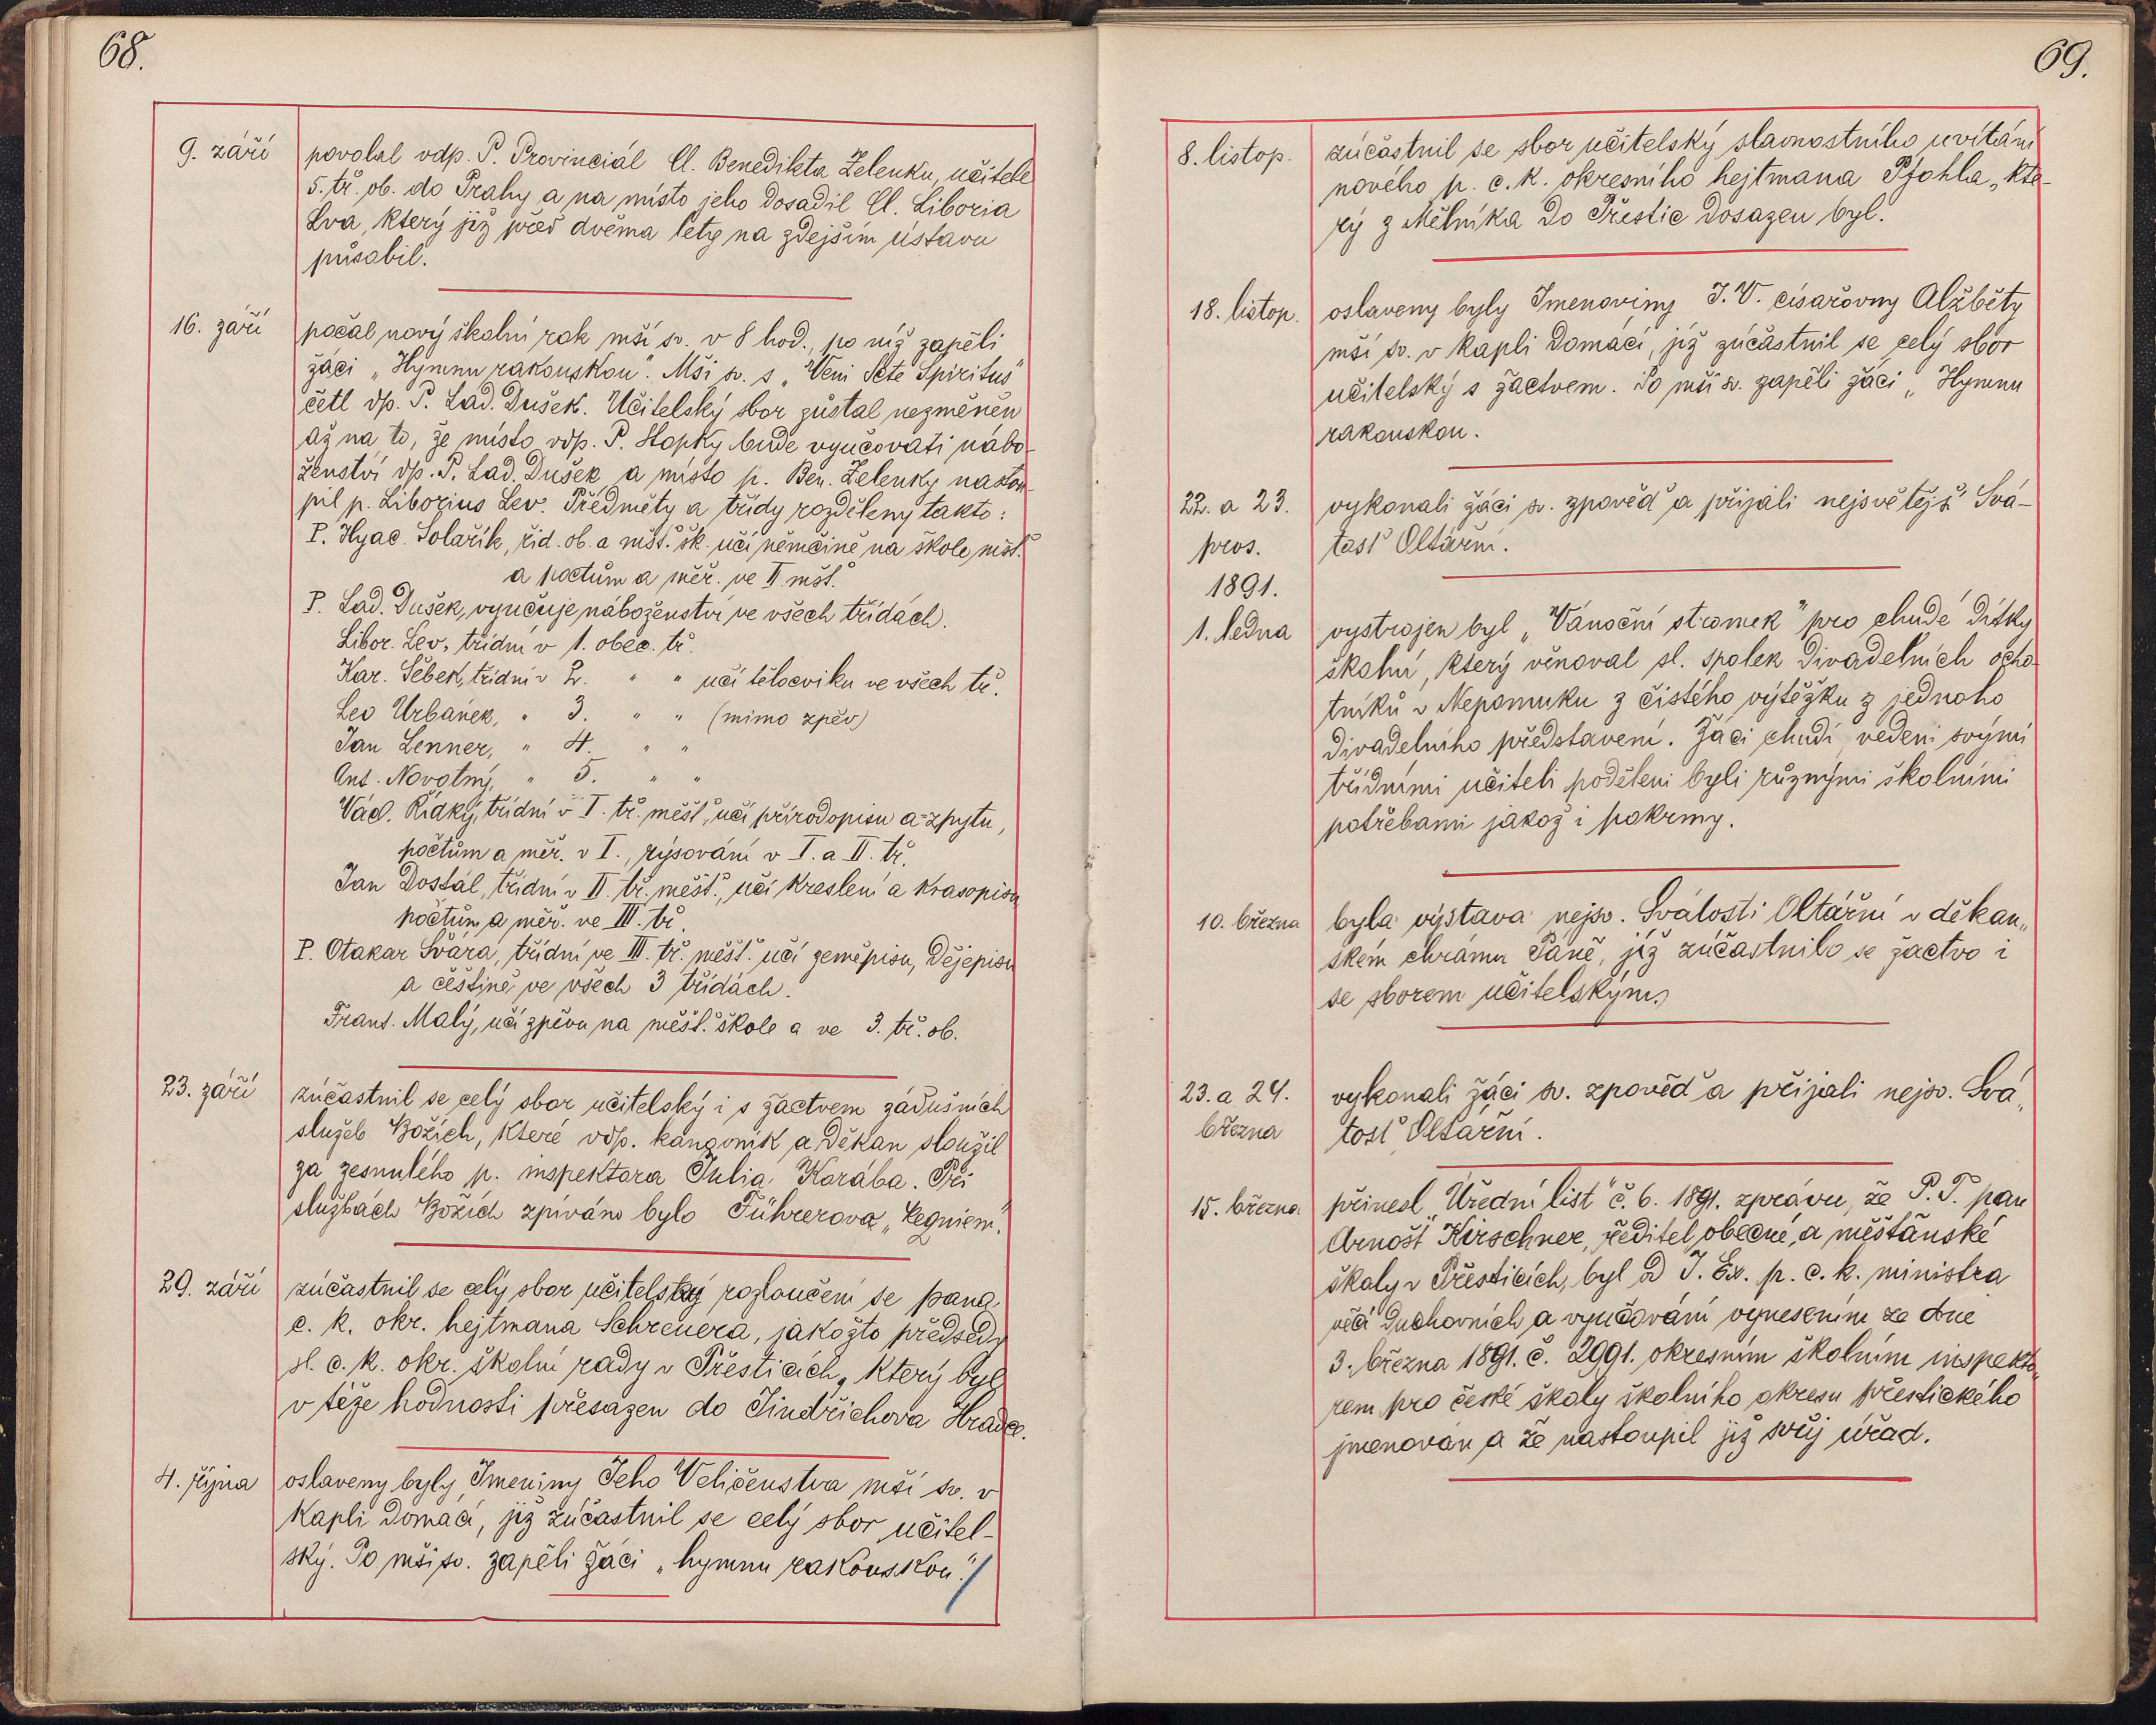 68.
9. září
povolal vdp. P. Provinciál Cl. Benedikta Zelenku, učitele
5. tř. ob. do Prahy a na místo jeho dosadil Cl. Liboria
Lva, který již před dvěma léty na zdejším ústavu
působil.
16. září
počal nový školní rok mší sv. v 8 hod., po níž zapěli
žáci „Hymnu rakouskou“. Mši sv. s „Veni Scte Spiritus“
četl vp. P. Lad. Dušek. Učitelský sbor zůstal nezměněn
až na to, že místo vdp. P. Stopky bude vyučovati nábo-
ženství vp. P. Lad. Dušek a místo p. Ben. Zelenky nastou-
pil p. Liborius Lev. Předměty a třídy rozděleny takto:
P. Hyac. Solařík, řid. ob. a mšť. šk. učí němčině na škole mšť.
a počtům a měř. ve II. mšť.
P. Lad. Dušek, vyučuje náboženství ve všech třídách.
Libor. Lev, třídní v 1. obec. tř.
Kar. Šebek, třídní v 2. " " učí tělocviku ve všech tř.
Leo Urbánek, " 3. " " (mimo zpěv)
Jan Lenner, " 4. " "
Ant. Novotný, " 5. " "
Václ. Řídký, třídní v I. tř. měšť., učí přírodopisu a-zpytu,
počtům a měř. v I., rýsování v I. a II. tř.
Jan Dostál, třídní v II. tř. měšť., učí kreslení a krasopisu
počtům a měř. ve III. tř.
P. Otakar Svára, třídní ve III. tř. měšť. učí zeměpisu, dějepisu
a češtině ve všech 3 třídách.
Frant. Malý, učí zpěvu na měšť. škole a ve 3. tř. ob.
23. září
zúčastnil se celý sbor učitelský i s žactvem zádušních
služeb Božích, které vdp. kanovník a děkan sloužil
za zesnulého p. inspektora Julia Karába. Při
službách Božích zpíváno bylo Führerova „Requiem“.
29. září
zúčastnil se celý sbor učitelský rozloučení se pana
c. k. okr. hejtmana Schreuera, jakožto předsedy
sl. c. k. okr. školní rady v Přešticích, který byl
v téže hodnosti přesazen do Jindřichova Hradce.
4. října
oslaveny byly Jmeniny Jeho Veličenstva mší sv. v
kapli domácí, jíž zúčastnil se celý sbor učitel-
ský. Po mši sv. zapěli žáci „hymnu rakouskou.“
69.
8. listop.
zúčastnil se sbor učitelský slavnostního uvítání
nového p. c. k. okresního hejtmana Pfohla, kte-
rý z Mělníka do Přeštic dosazen byl.
18. listop.
oslaveny byly Jmenoviny J. V. císařovny Alžběty
mší sv. v kapli domácí, jíž zúčastnil se celý sbor
učitelský s žactvem. Po mši sv. zapěli žáci „Hymnu
rakouskou.
22. a 23.
pros.
vykonali žáci sv. zpověď a přijali nejsvětější Svá-
tosť Oltářní.
1891.
1. ledna
vystrojen byl „Vánoční stromek“ pro chudé dítky
školní, který věnoval sl. spolek divadelních ocho-
tníků v Nepomuku z čistého výtěžku z jednoho
divadelního představení. Žáci chudí vedeni svými
třídními učiteli poděleni byli různými školními
potřebami jakož i pokrmy.
10. března
byla výstava nejsv. Svátosti Oltářní v děkan„
ském chrámu Páně, jíž zúčastnilo se žactvo i
se sborem učitelským.
23. a 24.
března
vykonali žáci sv. zpověď a přijali nejsv. Svá„
tosť Oltářní.
15. března
přinesl „Úřední list“ č. 6. 1891. zprávu, že P. T. pan
Arnošt Kirschner, ředitel obecné a měšťanské
školy v Přešticích, byl od J. Ex. p. c. k. ministra
věcí duchovních a vyučování vynesením ze dne
3. března 1891. č. 2991. okresním školním inspekto„
rem pro české školy školního okresu přeštického
jmenován a že nastoupil již svůj úřad.